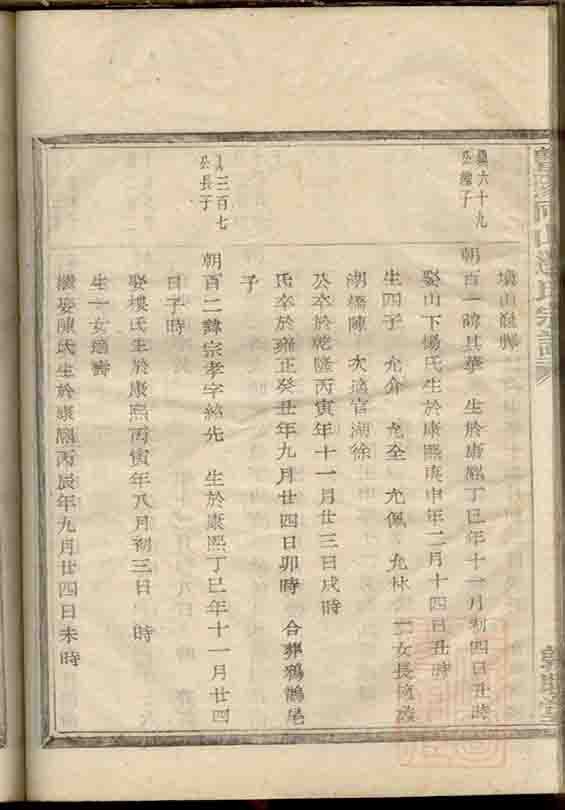 六十九
公 子
朝百一諱其華 生於康熙丁巳年十一月初四日丑時
娶山下楊氏生於康熙庚申年二月十四日丑時
生四子 允介 允全 允佩 允林 二女長適
湖橋陳 次適官湖徐
公卒於乾隆丙寅年十一月廿三日戌時
氏卒於雍正癸丑年九月廿四日卯時 合葬鴉鵲尾
子
三百七
公長子
朝百二諱宗孝字紹先 生於康熙丁巳年十一月廿四
日子時
娶樓氏生於康熙丙寅年八月初三日 時
生一女適壽
繼娶陳氏生於康熙丙辰年九月廿四日未時